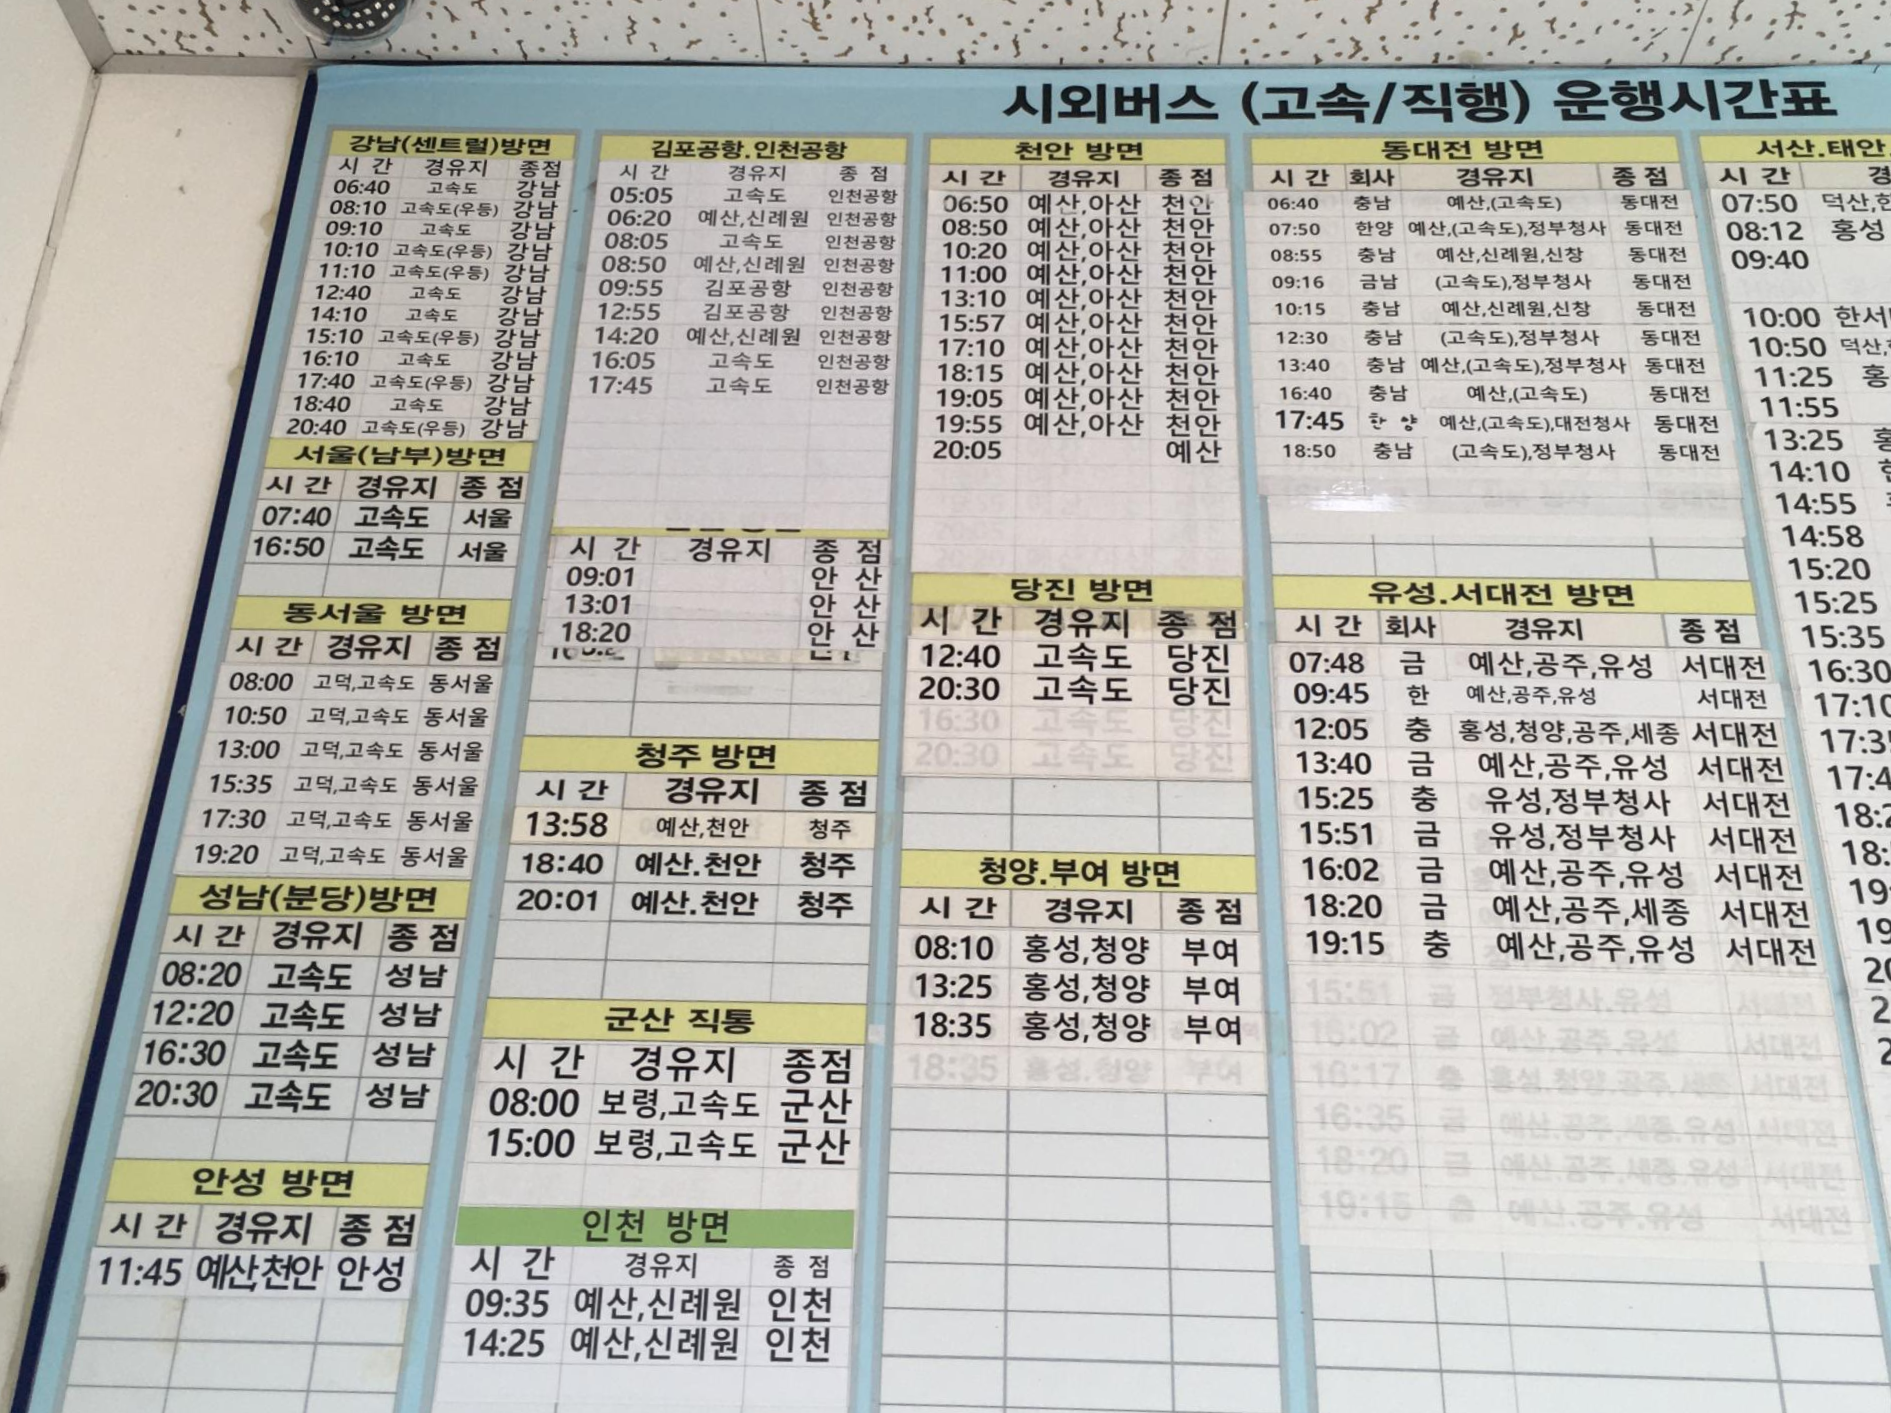 시외버스 (고속/직행) 운행시간표
강남(센트럴)방면
시 간 경유지 종점
06:40 고속도 강남
08:10 고속도(우등) 강남
09:10 고속도 강남
10:10 고속도(우등) 강남
11:10 고속도(우등) 강남
12:40 고속도 강남
14:10 고속도 강남
15:10 고속도(우등) 강남
16:10 고속도 강남
17:40 고속도(우등) 강남
18:40 고속도 강남
20:40 고속도(우등) 강남
서울(남부)방면
시 간 경유지 종 점
07:40 고속도 서울
16:50 고속도 서울
동서울 방면
시 간 경유지 종 점
08:00 고덕,고속도 동서울
10:50 고덕,고속도 동서울
13:00 고덕,고속도 동서울
15:35 고덕,고속도 동서울
17:30 고덕,고속도 동서울
19:20 고덕,고속도 동서울
성남(분당)방면
시 간 경유지 종 점
08:20 고속도 성남
12:20 고속도 성남
16:30 고속도 성남
20:30 고속도 성남
안성 방면
시 간 경유지 종 점
11:45 예산,천안 안성
김포공항.인천공항
시 간 경유지 종 점
05:05 고속도 인천공항
06:20 예산,신례원 인천공항
08:05 고속도 인천공항
08:50 예산,신례원 인천공항
09:55 김포공항 인천공항
12:55 김포공항 인천공항
14:20 예산,신례원 인천공항
16:05 고속도 인천공항
17:45 고속도 인천공항
시 간 경유지 종 점
09:01 안 산
13:01 안 산
18:20 안 산
청주 방면
시 간 경유지 종 점
13:58 예산,천안 청주
18:40 예산.천안 청주
20:01 예산.천안 청주
군산 직통
시 간 경유지 종점
08:00 보령,고속도 군산
15:00 보령,고속도 군산
인천 방면
시 간 경유지 종 점
09:35 예산,신례원 인천
14:25 예산,신례원 인천
천안 방면
시 간 경유지 종 점
06:50 예산,아산 천안
08:50 예산,아산 천안
10:20 예산,아산 천안
11:00 예산,아산 천안
13:10 예산,아산 천안
15:57 예산,아산 천안
17:10 예산,아산 천안
18:15 예산,아산 천안
19:05 예산,아산 천안
19:55 예산,아산 천안
20:05 예산
당진 방면
시 간 경유지 종 점
12:40 고속도 당진
20:30 고속도 당진
16:30 고속도 당진
20:30 고속도 당진
청양.부여 방면
시 간 경유지 종 점
08:10 홍성,청양 부여
13:25 홍성,청양 부여
18:35 홍성,청양 부여
18:35 홍성.청양 부여
동대전 방면
시 간 회사 경유지 종 점
06:40 충남 예산,(고속도) 동대전
07:50 한양 예산,(고속도),정부청사 동대전
08:55 충남 예산,신례원,신창 동대전
09:16 금남 (고속도),정부청사 동대전
10:15 충남 예산,신례원,신창 동대전
12:30 충남 (고속도),정부청사 동대전
13:40 충남 예산,(고속도),정부청사 동대전
16:40 충남 예산,(고속도) 동대전
17:45 한 양 예산,(고속도),대전청사 동대전
18:50 충남 (고속도),정부청사 동대전
유성.서대전 방면
시 간 회사 경유지 종 점
07:48 금 예산,공주,유성 서대전
09:45 한 예산,공주,유성 서대전
12:05 충 홍성,청양,공주,세종 서대전
13:40 금 예산,공주,유성 서대전
15:25 충 유성,정부청사 서대전
15:51 금 유성,정부청사 서대전
16:02 금 예산,공주,유성 서대전
18:20 금 예산,공주,세종 서대전
19:15 충 예산,공주,유성 서대전
15:51 금 정부청사.유성 서대전
16:02 금 예산.공주.유성 서대전
16:17 충 홍성.청양.공주.세종 서대전
16:35 금 예산.공주.세종.유성 서대전
18:20 금 예산.공주.세종.유성 서대전
19:15 충 예산.공주.유성 서대전
서산.태안
시 간
07:50 덕산
08:12 홍성
09:40
10:00 한서
10:50 덕산
11:25 홍
11:55
13:25
14:10
14:55
14:58
15:20
15:25
15:35
16:30
17:10